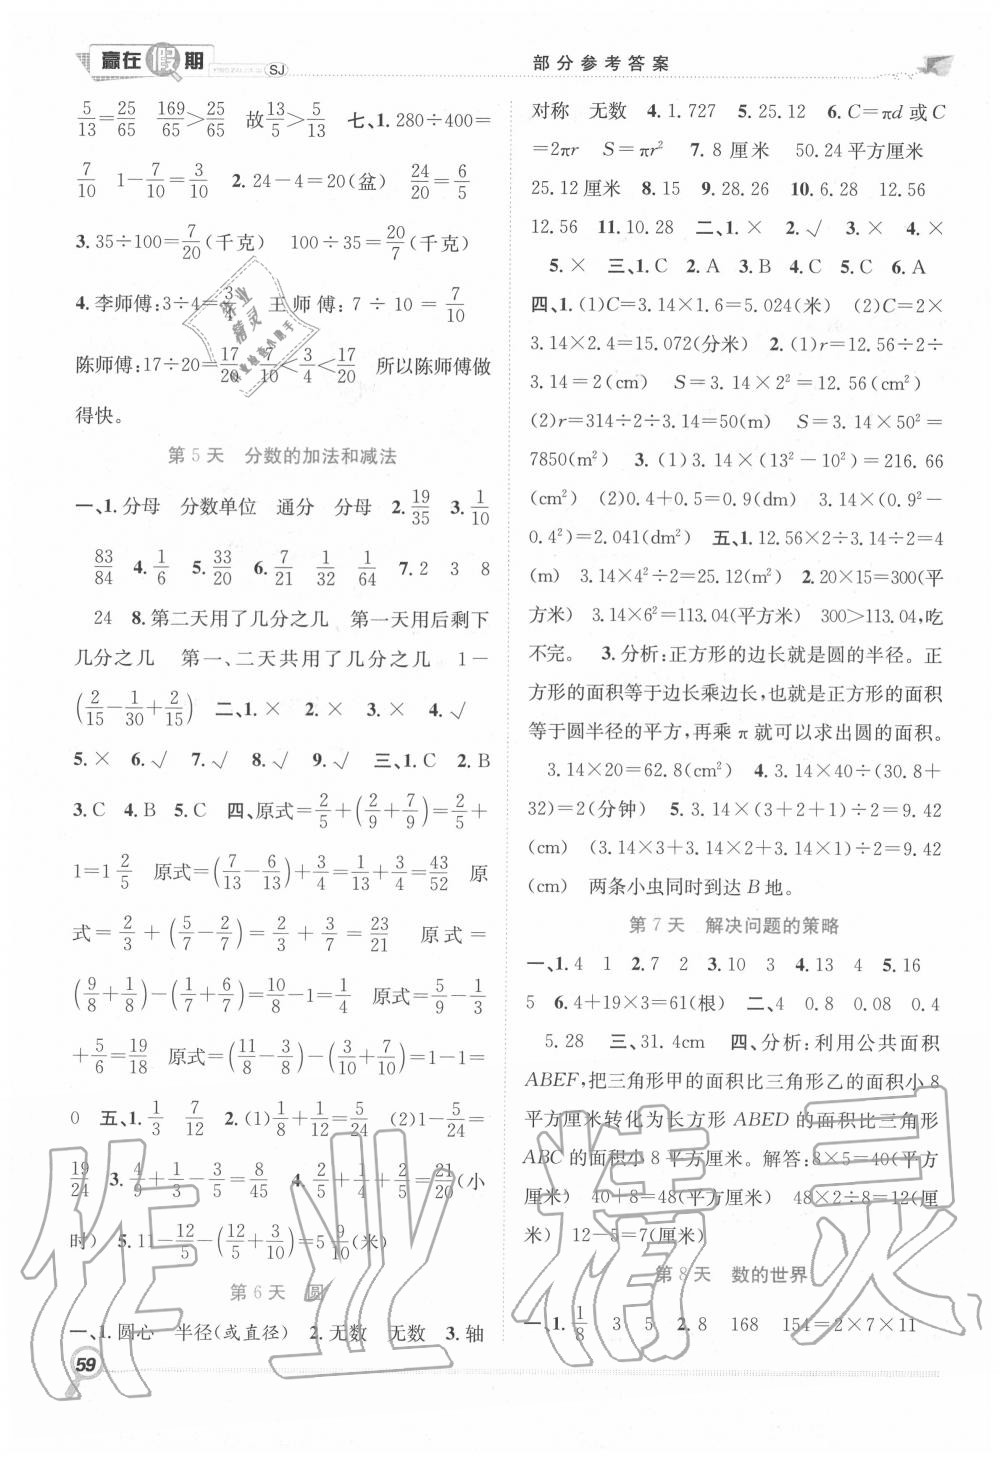 赢在假期
SJ
部分参考答案
5/13=25/65 169/65>25/65 故13/5>5/13 七、1.280÷400=
7/10 1-7/10=3/10 2.24-4=20(盆) 24/20=6/5
3.35÷100=7/20(千克) 100÷35=20/7(千克)
4.李师傅:3÷4=3/4 王师傅:7÷10=7/10
陈师傅:17÷20=17/20 7/10<3/4<17/20 所以陈师傅做
得快。
第5天 分数的加法和减法
一、1.分母 分数单位 通分 分母 2.19/35 3.1/10
83/84 4.1/6 5.33/20 6.7/21 1/32 1/64 7.2 3 8
24 8.第二天用了几分之几 第一天用后剩下
几分之几 第一、二天共用了几分之几 1-
(2/15-1/30+2/15) 二、1.× 2.× 3.× 4.√
5.× 6.√ 7.√ 8.√ 9.√ 三、1.C 2.B
3.C 4.B 5.C 四、原式=2/5+(2/9+7/9)=2/5+
1=1 2/5 原式=(7/13-6/13)+3/4=1/13+3/4=43/52 原
式=2/3+(5/7-2/7)=2/3+3/7=23/21 原式=
(9/8+1/8)-(1/7+6/7)=10/8-1=1/4 原式=5/9-1/3
+5/6=19/18 原式=(11/8-3/8)-(1/4+3/4)=1-1=
0 五、1.1/3 7/12 2.(1)1/8+1/12=5/24 (2)1-5/24=
19/24 3.4/9+1/3-3/5=8/45 4.2/5+1/4+2/5=21/20(小
时) 5.11-12/5-(12/5+3/10)=5 9/10(米)
第6天 圆
一、1.圆心 半径(或直径) 2.无数 无数 3.轴
59
对称 无数 4.1.727 5.25.12 6.C=πd或C
=2πr S=πr² 7.8厘米 50.24平方厘米
25.12厘米 8.15 9.28.26 10.6.28 12.56
12.56 11.10.28 二、1.× 2.√ 3.× 4.×
5.× 三、1.C 2.A 3.B 4.C 5.C 6.A
四、1.(1)C=3.14×1.6=5.024(米) (2)C=2×
3.14×2.4=15.072(分米) 2.(1)r=12.56÷2÷
3.14=2(cm) S=3.14×2²=12.56(cm²)
(2)r=314÷2÷3.14=50(m) S=3.14×50²=
7850(m²) 3.(1)3.14×(13²-10²)=216.66
(cm²) (2)0.4+0.5=0.9(dm) 3.14×(0.9²-
0.4²)=2.041(dm²) 五、1.12.56×2÷3.14÷2=4
(m) 3.14×4²÷2=25.12(m²) 2.20×15=300(平
方米) 3.14×6²=113.04(平方米) 300>113.04,吃
不完。 3.分析:正方形的边长就是圆的半径。正
方形的面积等于边长乘边长,也就是正方形的面积
等于圆半径的平方,再乘π就可以求出圆的面积。
3.14×20=62.8(cm²) 4.3.14×40÷(30.8+
32)=2(分钟) 5.3.14×(3+2+1)÷2=9.42
(cm) (3.14×3+3.14×2+3.14×1)÷2=9.42
(cm) 两条小虫同时到达B地。
第7天 解决问题的策略
一、1.4 1 2.7 2 3.10 3 4.13 4 5.16
5 6.4+19×3=61(根) 二、4 0.8 0.08 0.4
5.28 三、31.4cm 四、分析:利用公共面积
ABEF,把三角形甲的面积比三角形乙的面积小8
平方厘米转化为长方形ABED的面积比三角形
ABC的面积小8平方厘米。解答:8×5=40(平方
厘米) 40+8=48(平方厘米) 48×2÷8=12(厘
米) 12-5=7(厘米)
第8天 数的世界
一、1.1/8 3 5 2.8 168 154=2×7×11
作业精灵